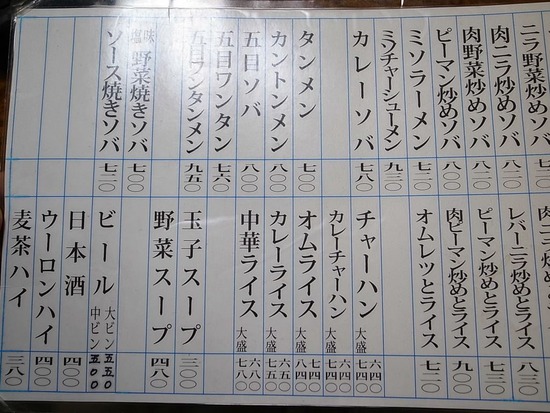 ニラ野菜炒めソバ
肉ニラ炒めソバ 八二〇
肉野菜炒めソバ 八二〇
ピーマン炒めソバ 八〇〇
ミソラーメン 七二〇
ミソチャーシューメン 九三〇
カレーソバ 七八〇
タンメン 七〇〇
カントンメン 八〇〇
五目ソバ 八〇〇
五目ワンタン 七六〇
五目ワンタンメン 九五〇
塩味 野菜焼きソバ 七〇〇
ソース焼きソバ 七二〇
レバーニラ炒めとライス 八三〇
ピーマン炒めとライス 七三〇
肉ピーマン炒めとライス 九〇〇
オムレツとライス 七二〇
チャーハン 六四〇 大盛 七四〇
カレーチャーハン 七四〇 大盛 八四〇
オムライス 七四〇 大盛 八四〇
カレーライス 六五〇 大盛 七五〇
中華ライス 六八〇 大盛 七八〇
玉子スープ 三〇〇
野菜スープ 四八〇
ビール 大ビン 五五〇 中ビン 五〇〇
日本酒 四〇〇
ウーロンハイ 四〇〇
麦茶ハイ 三八〇